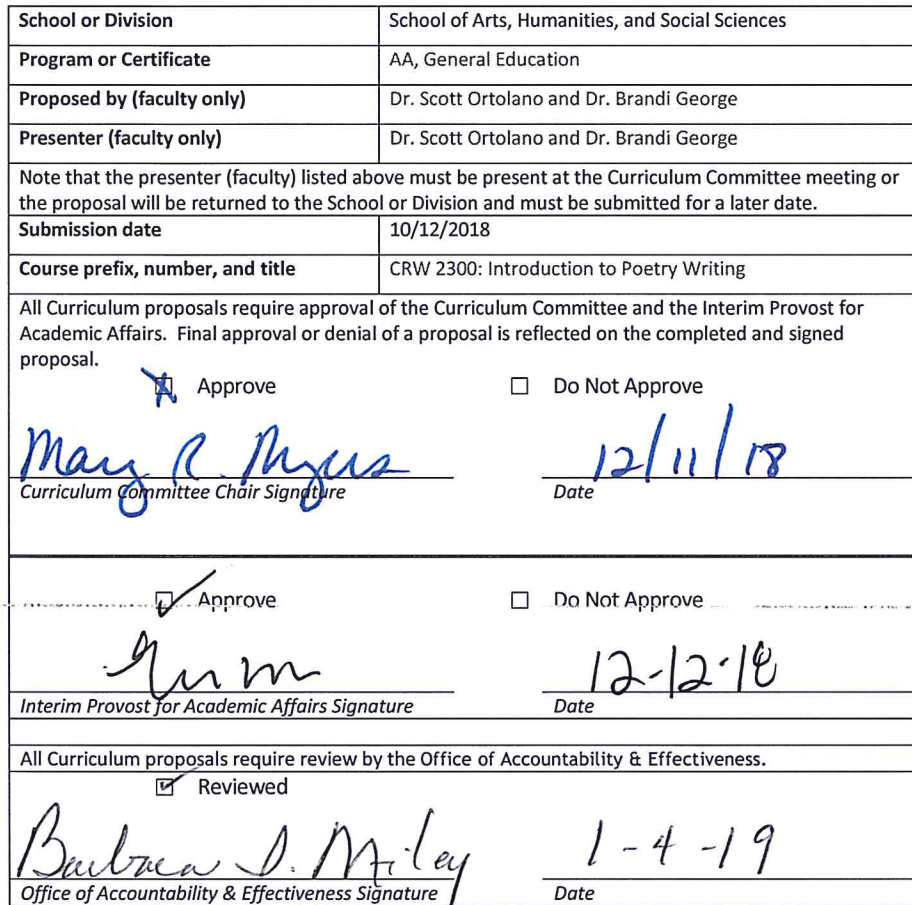 School or Division School of Arts, Humanities, and Social Sciences
Program or Certificate AA, General Education
Proposed by (faculty only) Dr. Scott Ortolano and Dr. Brandi George
Presenter (faculty only) Dr. Scott Ortolano and Dr. Brandi George
Note that the presenter (faculty) listed above must be present at the Curriculum Committee meeting or
the proposal will be returned to the School or Division and must be submitted for a later date.
Submission date 10/12/2018
Course prefix, number, and title CRW 2300: Introduction to Poetry Writing
All Curriculum proposals require approval of the Curriculum Committee and the Interim Provost for
Academic Affairs. Final approval or denial of a proposal is reflected on the completed and signed
proposal.
Approve Do Not Approve
Mary R. Myers 12/11/18
Curriculum Committee Chair Signature Date
Approve Do Not Approve
12-12-18
Interim Provost for Academic Affairs Signature Date
All Curriculum proposals require review by the Office of Accountability & Effectiveness.
Reviewed
Barbara D. Miley 1-4-19
Office of Accountability & Effectiveness Signature Date